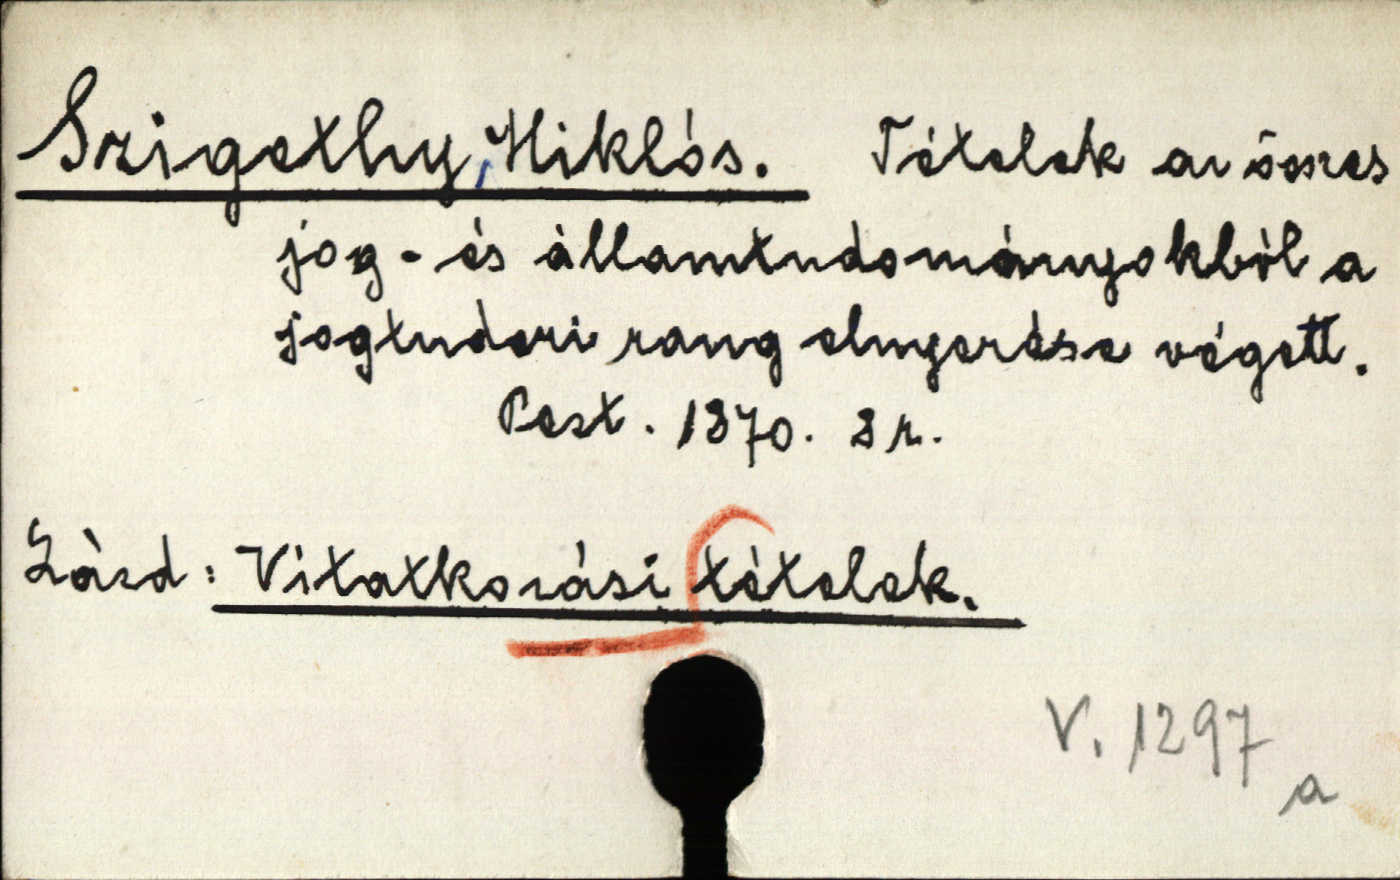 Szigethy, Miklós. Tételek az összes
jog- és államtudományokból a
jogtudori rang elnyerése végett.
Pest. 1870. 8 r.
Lásd: Vitatkozási tételek.
V. 1297
a